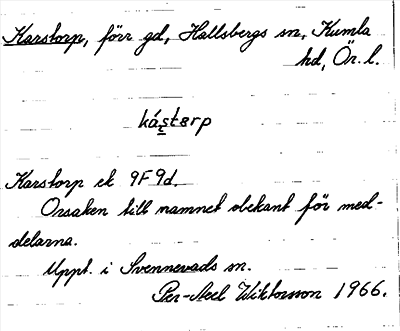 Karstorp, förr gd, Hallsbergs sn, Kumla
hd, Ör. l.
kástərp
Karstorp ek 9F9d.
Orsaken till namnet obekant för med-
delarna.
Uppt. i Svennevads sn.
Per-Axel Wiktorsson 1966.